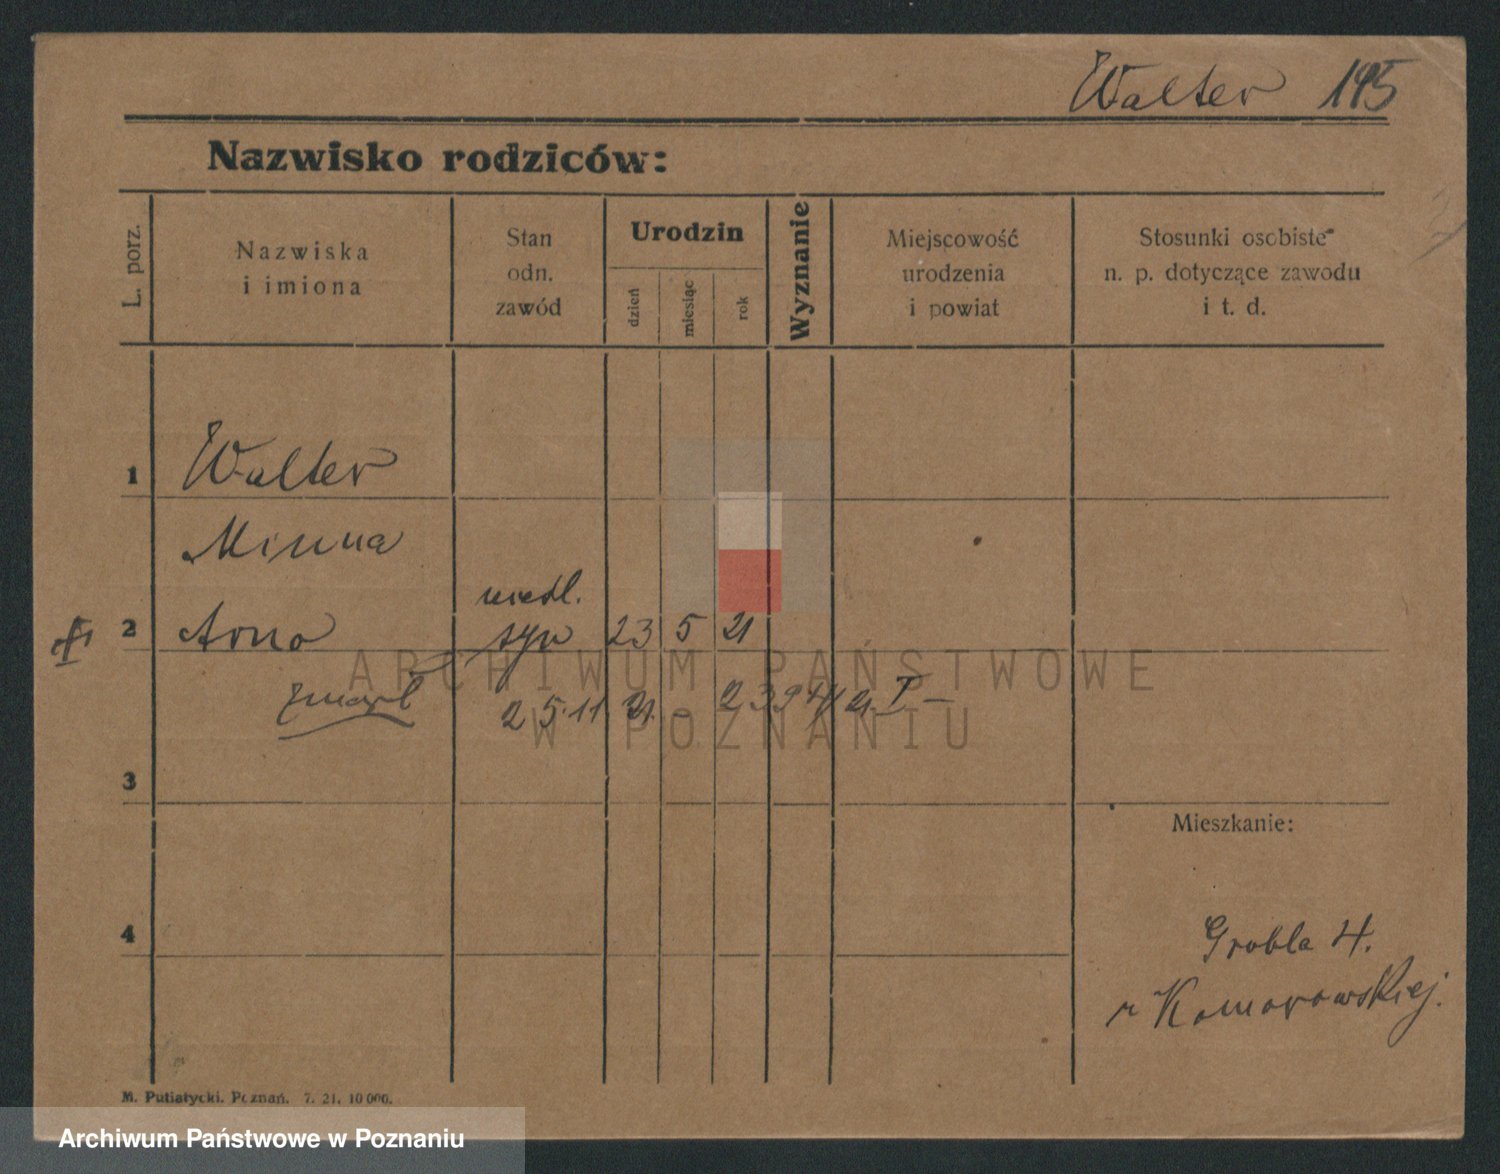 Walter 195
Nazwisko rodziców:
L. porz.
Nazwiska
i imiona
Stan
odn.
zawód
Urodzin
dzień
miesiąc
rok
Wyznanie
Miejscowość
urodzenia
i powiat
Stosunki osobiste
n. p. dotyczące zawodu
i t. d.
1 Walter
Minna
2 Arno
syn 23 5 21
zmarł 25.11 21.
3
4
Mieszkanie:
Grobla 4.
Komorowskiej.
M. Putiatycki. Poznań. 7. 21. 10 000.
ARCHIWUM PAŃSTWOWE
W POZNANIU
Archiwum Państwowe w Poznaniu